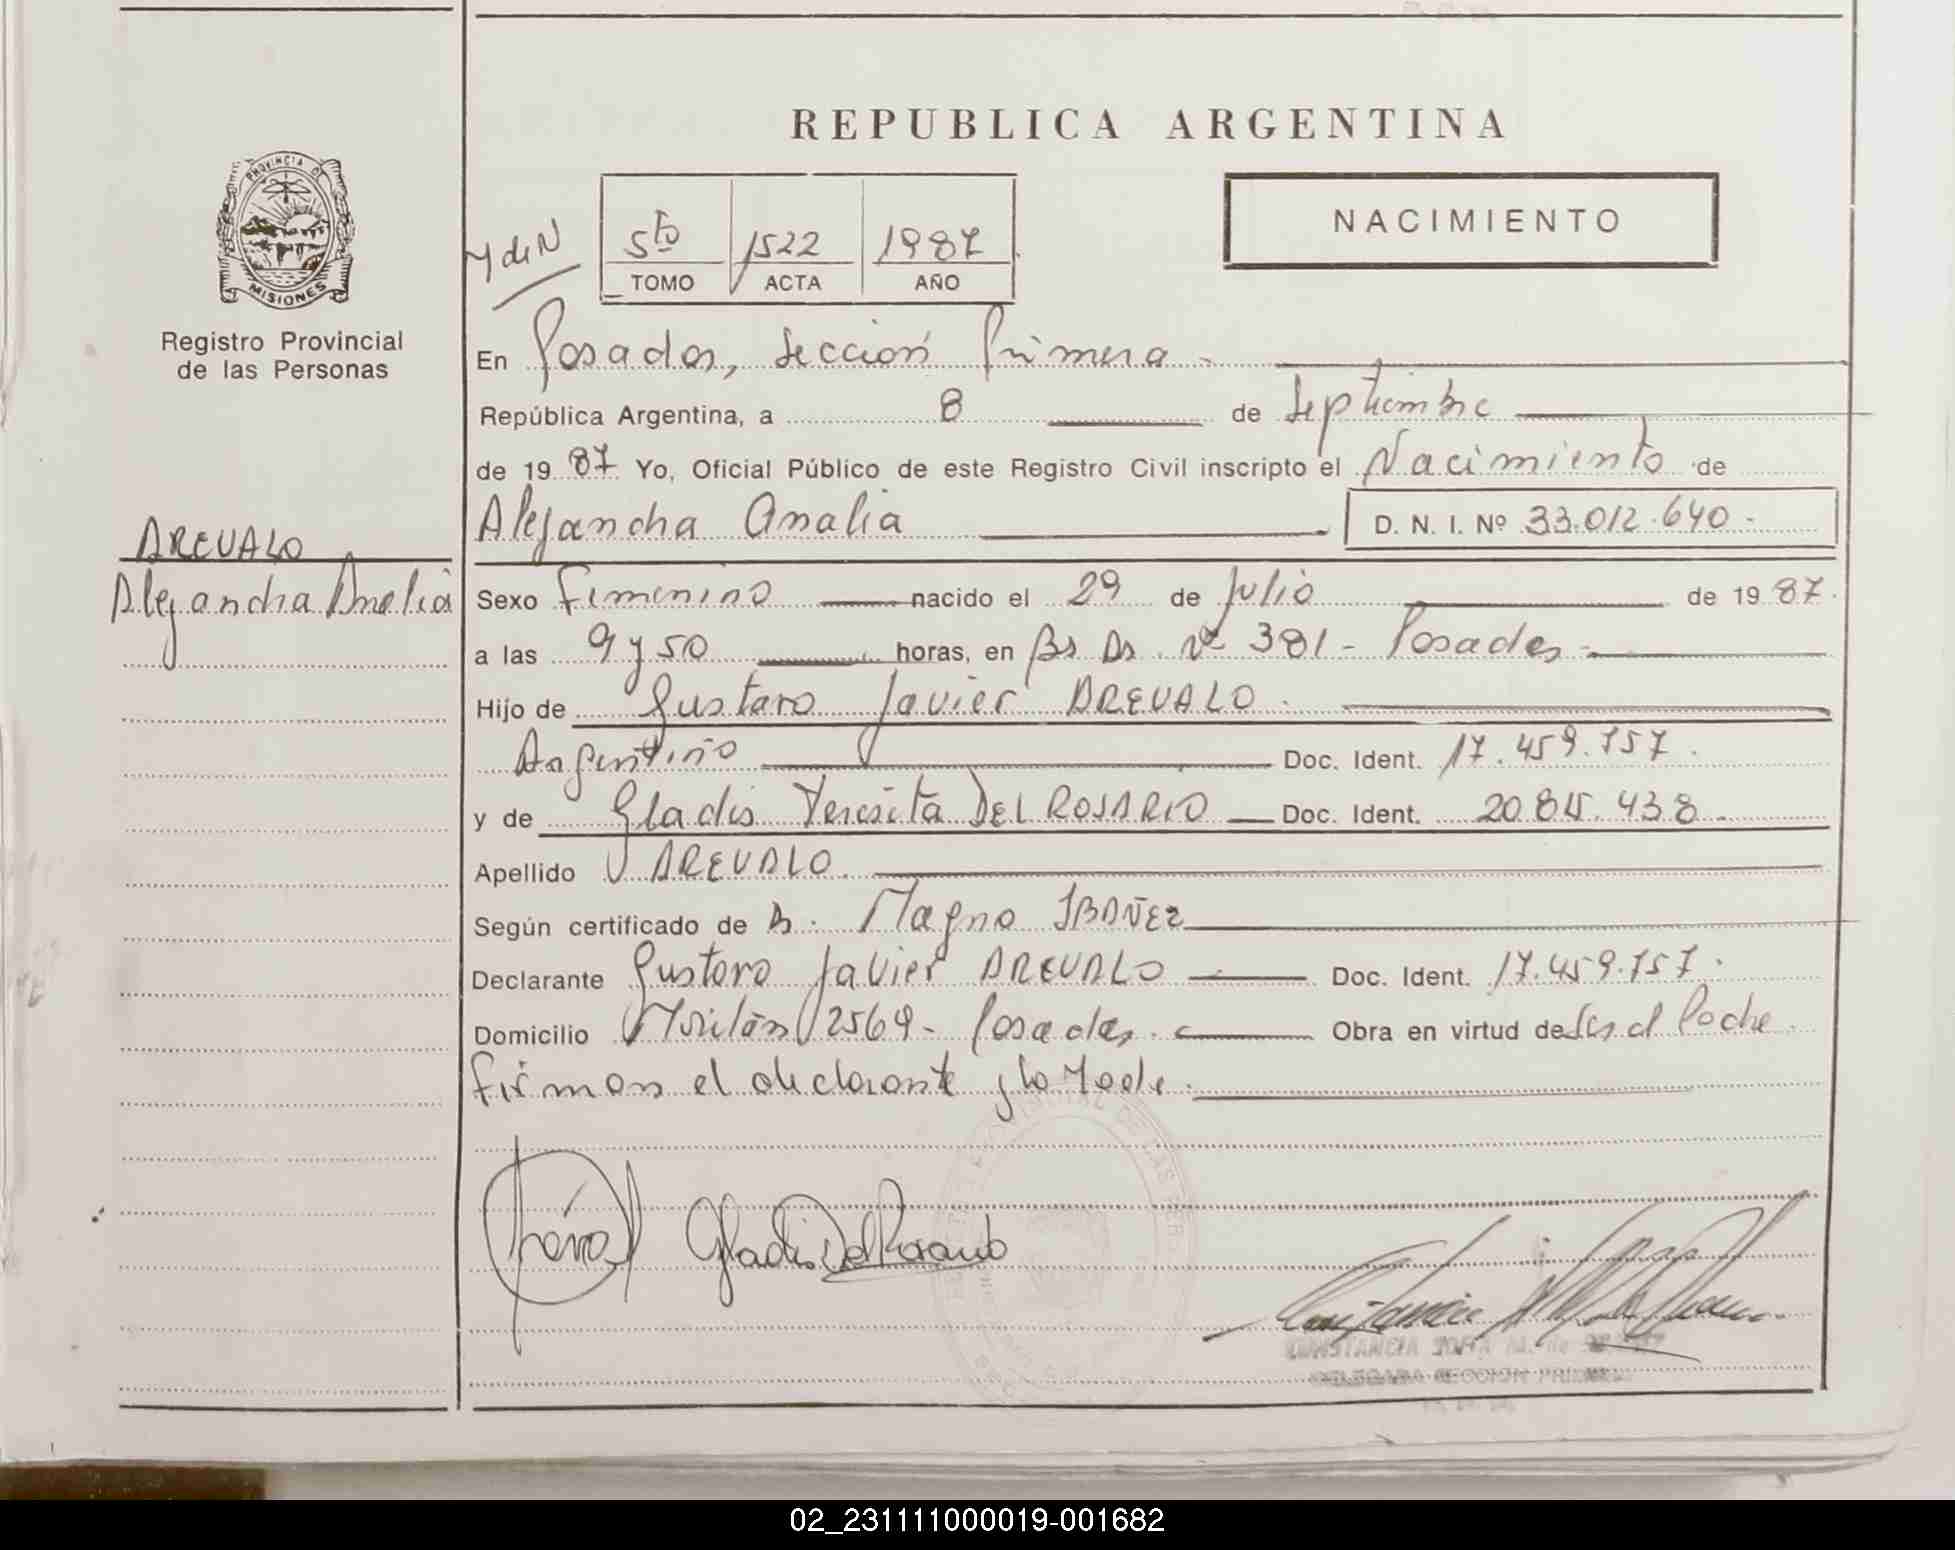 REPUBLICA ARGENTINA
PROVINCIA DE
MISIONES
Registro Provincial
de las Personas
NACIMIENTO
M de N
5to 1522 1987
TOMO ACTA AÑO
En Posadas, Sección Primera
República Argentina, a 8 de Septiembre
de 1987 Yo, Oficial Público de este Registro Civil inscripto el Nacimiento de
Alejandra Analia D. N. I. Nº 33.012.640
AREVALO
Alejandra Analia
Sexo Femenino nacido el 29 de Julio de 1987.
a las 9 y 50 horas, en Bs As. Nº 381 - Posadas
Hijo de Gustavo Javier AREVALO
Argentino Doc. Ident. 17.459.757.
y de Gladis Teresita DEL ROSARIO Doc. Ident. 438
Apellido AREVALO
Según certificado de Magno IBAÑEZ
Declarante Gustavo Javier AREVALO Doc. Ident. 17.459.757.
Domicilio 2569 - Posadas. Obra en virtud de
firman el declarante y la Madre.
Gladis Del Rosario
02_231111000019-001682